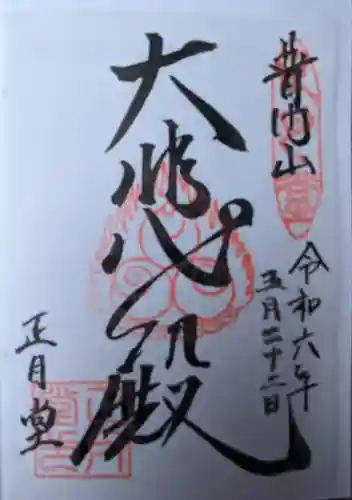 昔内山
令和六年
五月二十二日
大悲殿
正月堂